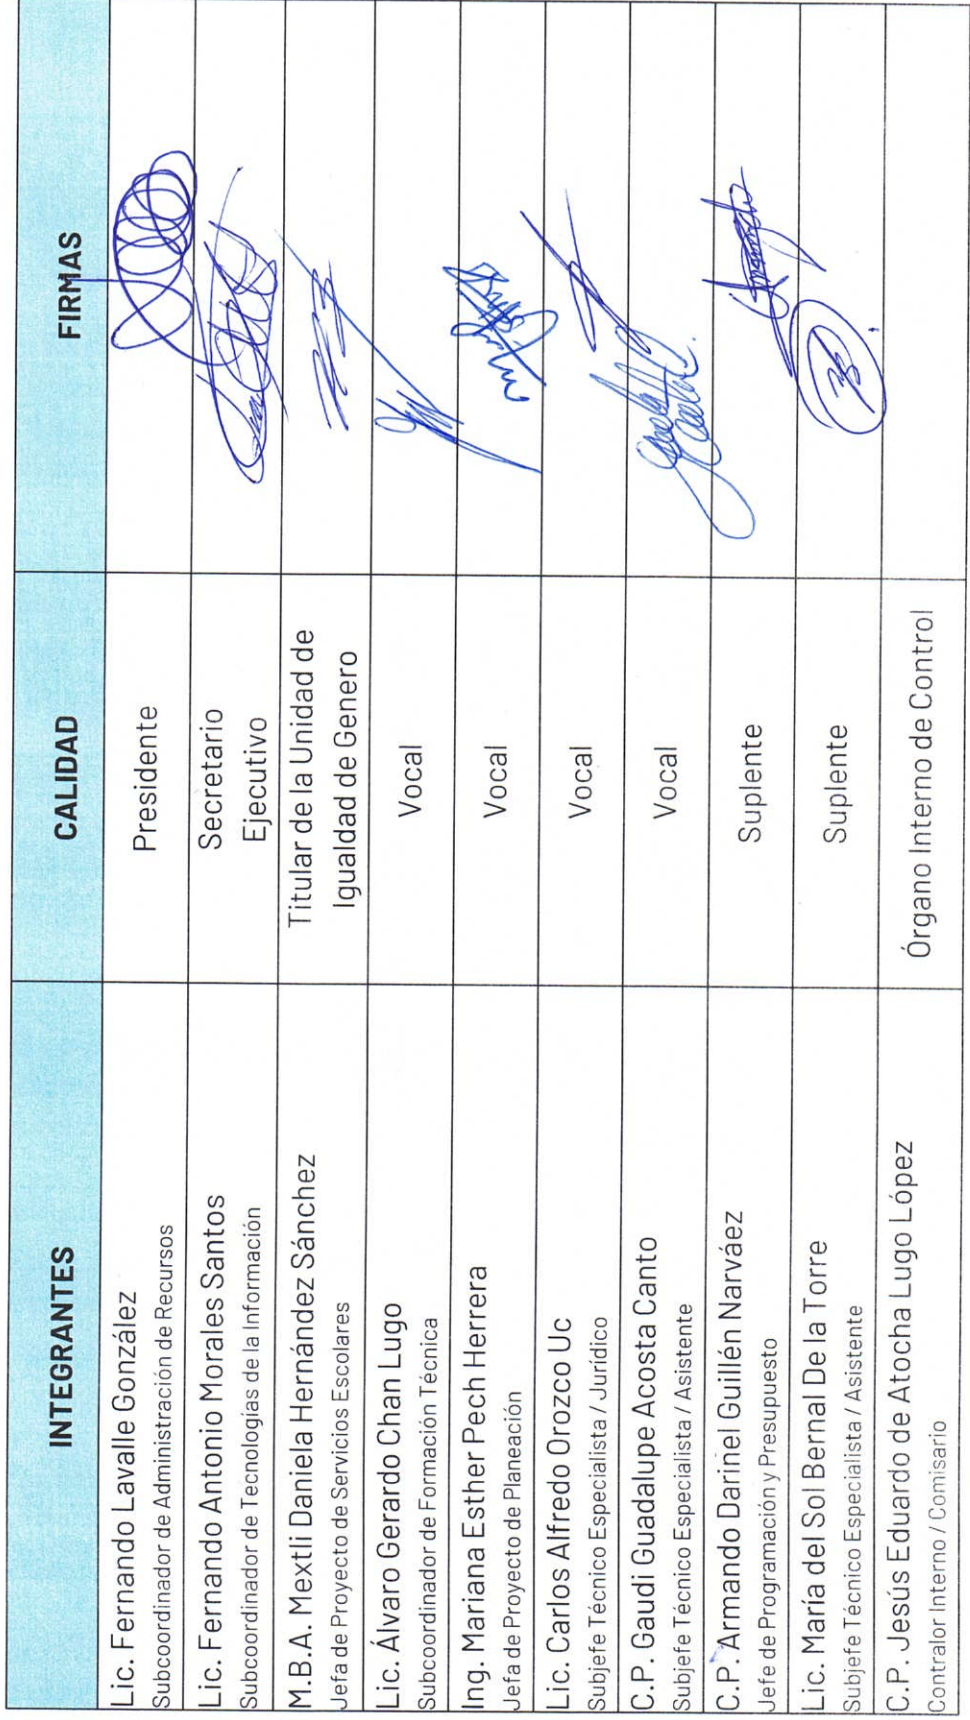 INTEGRANTES CALIDAD FIRMAS
Lic. Fernando Lavalle González
Subcoordinador de Administración de Recursos
Presidente
Lic. Fernando Antonio Morales Santos
Subcoordinador de Tecnologías de la Información
Secretario
Ejecutivo
M.B.A. Mextli Daniela Hernández Sánchez
Jefa de Proyecto de Servicios Escolares
Titular de la Unidad de
Igualdad de Genero
Lic. Álvaro Gerardo Chan Lugo
Subcoordinador de Formación Técnica
Vocal
Ing. Mariana Esther Pech Herrera
Jefa de Proyecto de Planeación
Vocal
Lic. Carlos Alfredo Orozco Uc
Subjefe Técnico Especialista / Jurídico
Vocal
C.P. Gaudi Guadalupe Acosta Canto
Subjefe Técnico Especialista / Asistente
Vocal
C.P. Armando Darinel Guillén Narváez
Jefe de Programación y Presupuesto
Suplente
Lic. María del Sol Bernal De la Torre
Subjefe Técnico Especialista / Asistente
Suplente
C.P. Jesús Eduardo de Atocha Lugo López
Contralor Interno / Comisario
Órgano Interno de Control